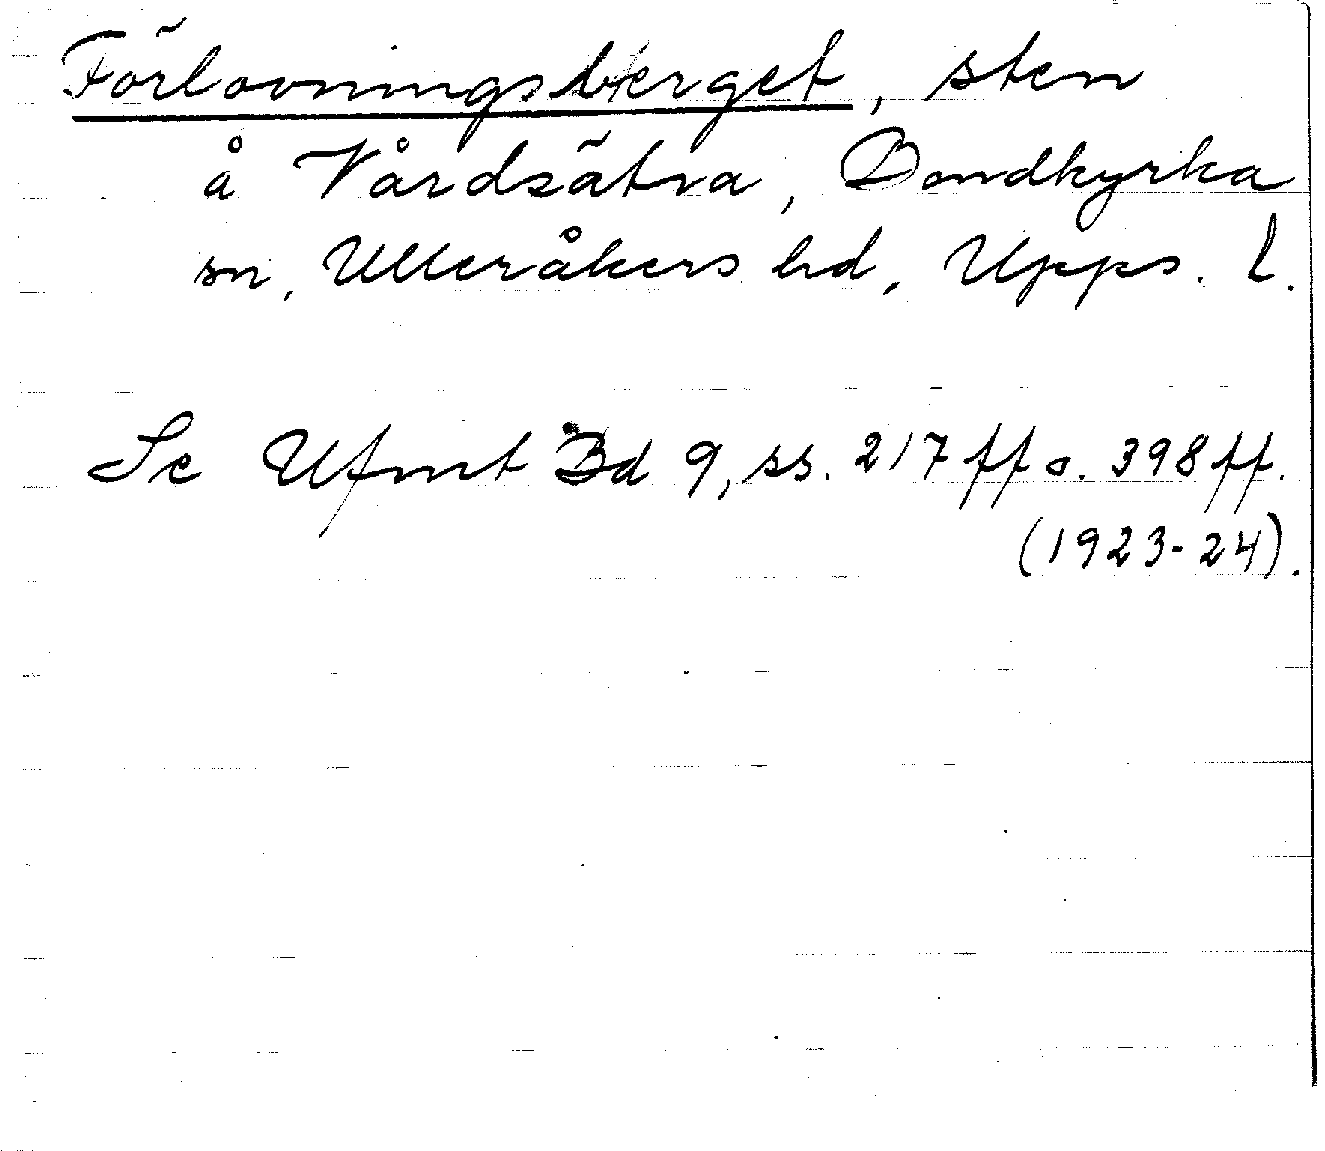 Förlovningsberget, sten
å Vårdsätra, Bondkyrka
sn, Ulleråkers hd, Upps. l.
Se Ufmt Bd 9, ss. 217 ff o. 398 ff.
(1923-24).